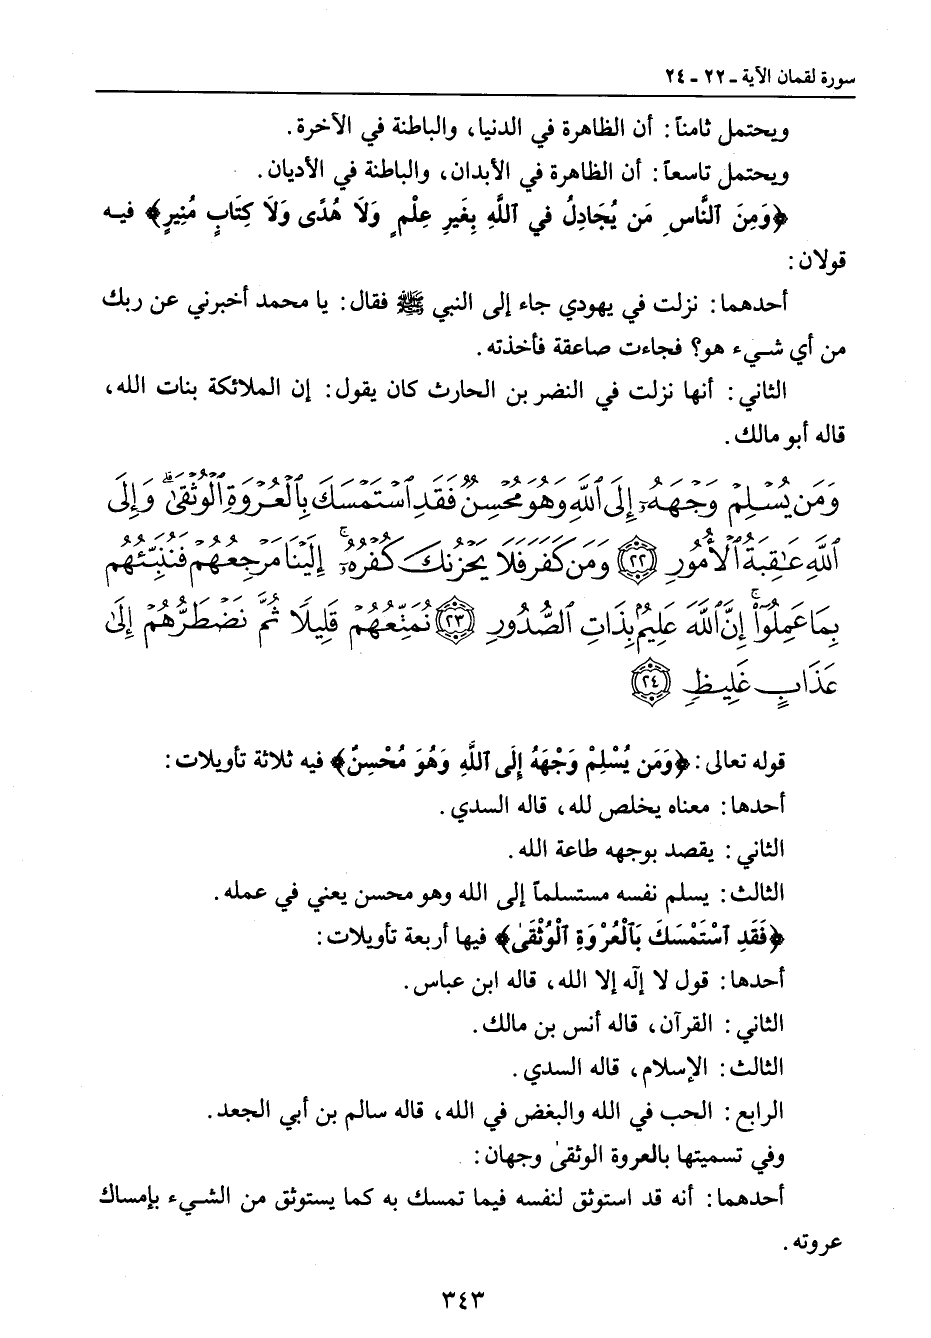 سورة لقمان الآية ـ ٢٢ ـ ٢٤
ويحتمل ثامناً: أن الظاهرة في الدنيا، والباطنة في الآخرة.
ويحتمل تاسعاً: أن الظاهرة في الأبدان، والباطنة في الأديان.
﴿وَمِنَ ٱلنَّاسِ مَن يُجَادِلُ في ٱللَّهِ بِغَيرِ عِلْمٍ وَلَا هُدًى وَلَا كِتَابٍ مُنِيرٍ﴾ فيه
قولان:
أحدهما: نزلت في يهودي جاء إلى النبي ﷺ فقال: يا محمد أخبرني عن ربك
من أي شيء هو؟ فجاءت صاعقة فأخذته.
الثاني: أنها نزلت في النضر بن الحارث كان يقول: إن الملائكة بنات الله،
قاله أبو مالك.
وَمَن يُسْلِمْ وَجْهَهُۥٓ إِلَى ٱللَّهِ وَهُوَ مُحْسِنٌ فَقَدِ ٱسْتَمْسَكَ بِٱلْعُرْوَةِ ٱلْوُثْقَىٰۗ وَإِلَى
ٱللَّهِ عَٰقِبَةُ ٱلْأُمُورِ ٢٢ وَمَن كَفَرَ فَلَا يَحْزُنكَ كُفْرُهُۥٓۚ إِلَيْنَا مَرْجِعُهُمْ فَنُنَبِّئُهُم
بِمَا عَمِلُوٓا۟ۚ إِنَّ ٱللَّهَ عَلِيمٌۢ بِذَاتِ ٱلصُّدُورِ ٢٣ نُمَتِّعُهُمْ قَلِيلًا ثُمَّ نَضْطَرُّهُمْ إِلَىٰ
عَذَابٍ غَلِيظٍ ٢٤
قوله تعالى: ﴿وَمَن يُسْلِمْ وَجْهَهُ إِلَى ٱللَّهِ وَهُوَ مُحْسِنٌ﴾ فيه ثلاثة تأويلات:
أحدها: معناه يخلص لله، قاله السدي.
الثاني: يقصد بوجهه طاعة الله.
الثالث: يسلم نفسه مستسلماً إلى الله وهو محسن يعني في عمله.
﴿فَقَدِ ٱسْتَمْسَكَ بَٱلْعُرْوَةِ ٱلْوُثْقَىٰ﴾ فيها أربعة تأويلات:
أحدها: قول لا إلٓه إلا الله، قاله ابن عباس.
الثاني: القرآن، قاله أنس بن مالك.
الثالث: الإسلام، قاله السدي.
الرابع: الحب في الله والبغض في الله، قاله سالم بن أبي الجعد.
وفي تسميتها بالعروة الوثقىٰ وجهان:
أحدهما: أنه قد استوثق لنفسه فيما تمسك به كما يستوثق من الشيء بإمساك
عروته.
٣٤٣